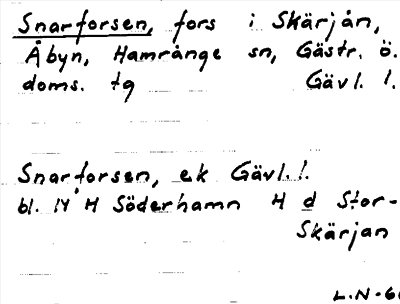 Snarforsen, fors i Skärjån,
Åbyn, Hamrånge sn, Gästr. ö.
doms. tg Gävl. l.
Snarforsen, ek Gävl. l.
bl. 14 H Söderhamn H d Stor-
Skärjan
L.N-60